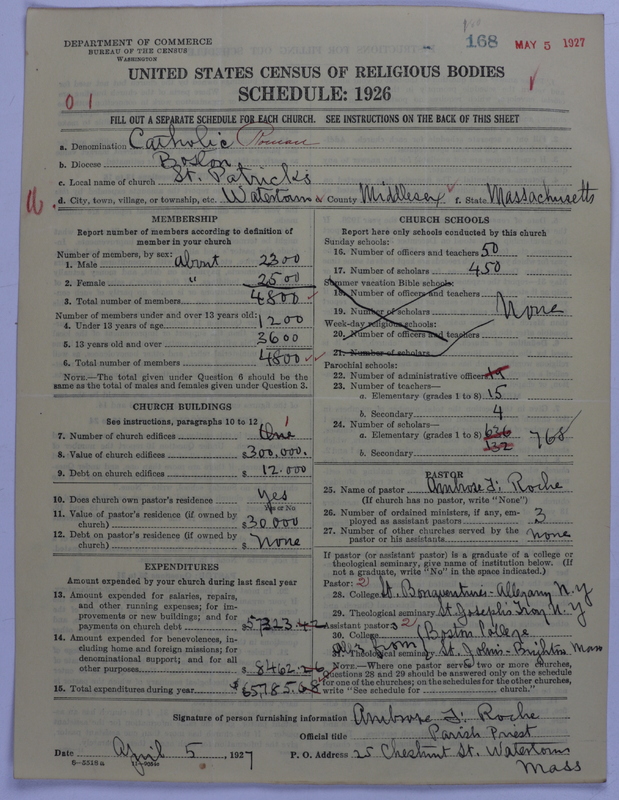 DEPARTMENT OF COMMERCE
BUREAU OF THE CENSUS
WASHINGTON
168 MAY 5 1927
UNITED STATES CENSUS OF RELIGIOUS BODIES
SCHEDULE: 1926
01
FILL OUT A SEPARATE SCHEDULE FOR EACH CHURCH. SEE INSTRUCTIONS ON THE BACK OF THIS SHEET
a. Denomination Catholic Roman
b. Diocese Boston
c. Local name of church St. Patricks
d. City, town, village, or township, etc. Watertown County Middlesex f. State Massachusetts
MEMBERSHIP
Report number of members according to definition of
member in your church
Number of members, by sex:
1. Male about 2300
2. Female " 2500
3. Total number of members 4800
Number of members under and over 13 years old:
4. Under 13 years of age 1200
5. 13 years old and over 3600
6. Total number of members 4800
NOTE.—The total given under Question 6 should be the
same as the total of males and females given under Question 3.
CHURCH BUILDINGS
See instructions, paragraphs 10 to 12
7. Number of church edifices One 1
8. Value of church edifices $300,000.
9. Debt on church edifices $ 12.000
10. Does church own pastor's residence yes
Yes or No
11. Value of pastor's residence (if owned by
church) $30000
12. Debt on pastor's residence (if owned by
church) $ None
EXPENDITURES
Amount expended by your church during last fiscal year
13. Amount expended for salaries, repairs,
and other running expenses; for im-
provements or new buildings; and for
payments on church debt $57323.42
14. Amount expended for benevolences, in-
cluding home and foreign missions; for
denominational support; and for all
other purposes $8462.26
15. Total expenditures during year $65785.68
CHURCH SCHOOLS
Report here only schools conducted by this church
Sunday schools:
16. Number of officers and teachers 50
17. Number of scholars 450
Summer vacation Bible schools:
18. Number of officers and teachers
19. Number of scholars None
Week-day religious schools:
20. Number of officers and teachers
21. Number of scholars
Parochial schools:
22. Number of administrative officers
23. Number of teachers—
a. Elementary (grades 1 to 8) 15
b. Secondary 4
24. Number of scholars—
a. Elementary (grades 1 to 8) 636 768
b. Secondary 132
PASTOR
25. Name of pastor Ambrose F. Roche
(If church has no pastor, write "None")
26. Number of ordained ministers, if any, em-
ployed as assistant pastors 3
27. Number of other churches served by the
pastor or his assistants none
If pastor (or assistant pastor) is a graduate of a college or
theological seminary, give name of institution below. (If
not a graduate, write "No" in the space indicated.)
Pastor: 2
28. College St. Bonaventures - Allegany N.Y
29. Theological seminary St Josephs Troy N.Y
Assistant pastor: 2
30. College Boston College
all 3 from
31. Theological seminary St. Johns - Brighton Mass
NOTE.—Where one pastor served two or more churches,
Questions 28 and 29 should be answered only on the schedule
for one of the churches; on the schedules for the other churches,
write "See schedule for church."
Signature of person furnishing information Ambrose F. Roche
Official title Parish Priest
Date April 5, 1927 P. O. Address 25 Chestnut St. Watertown
Mass
8-5518a